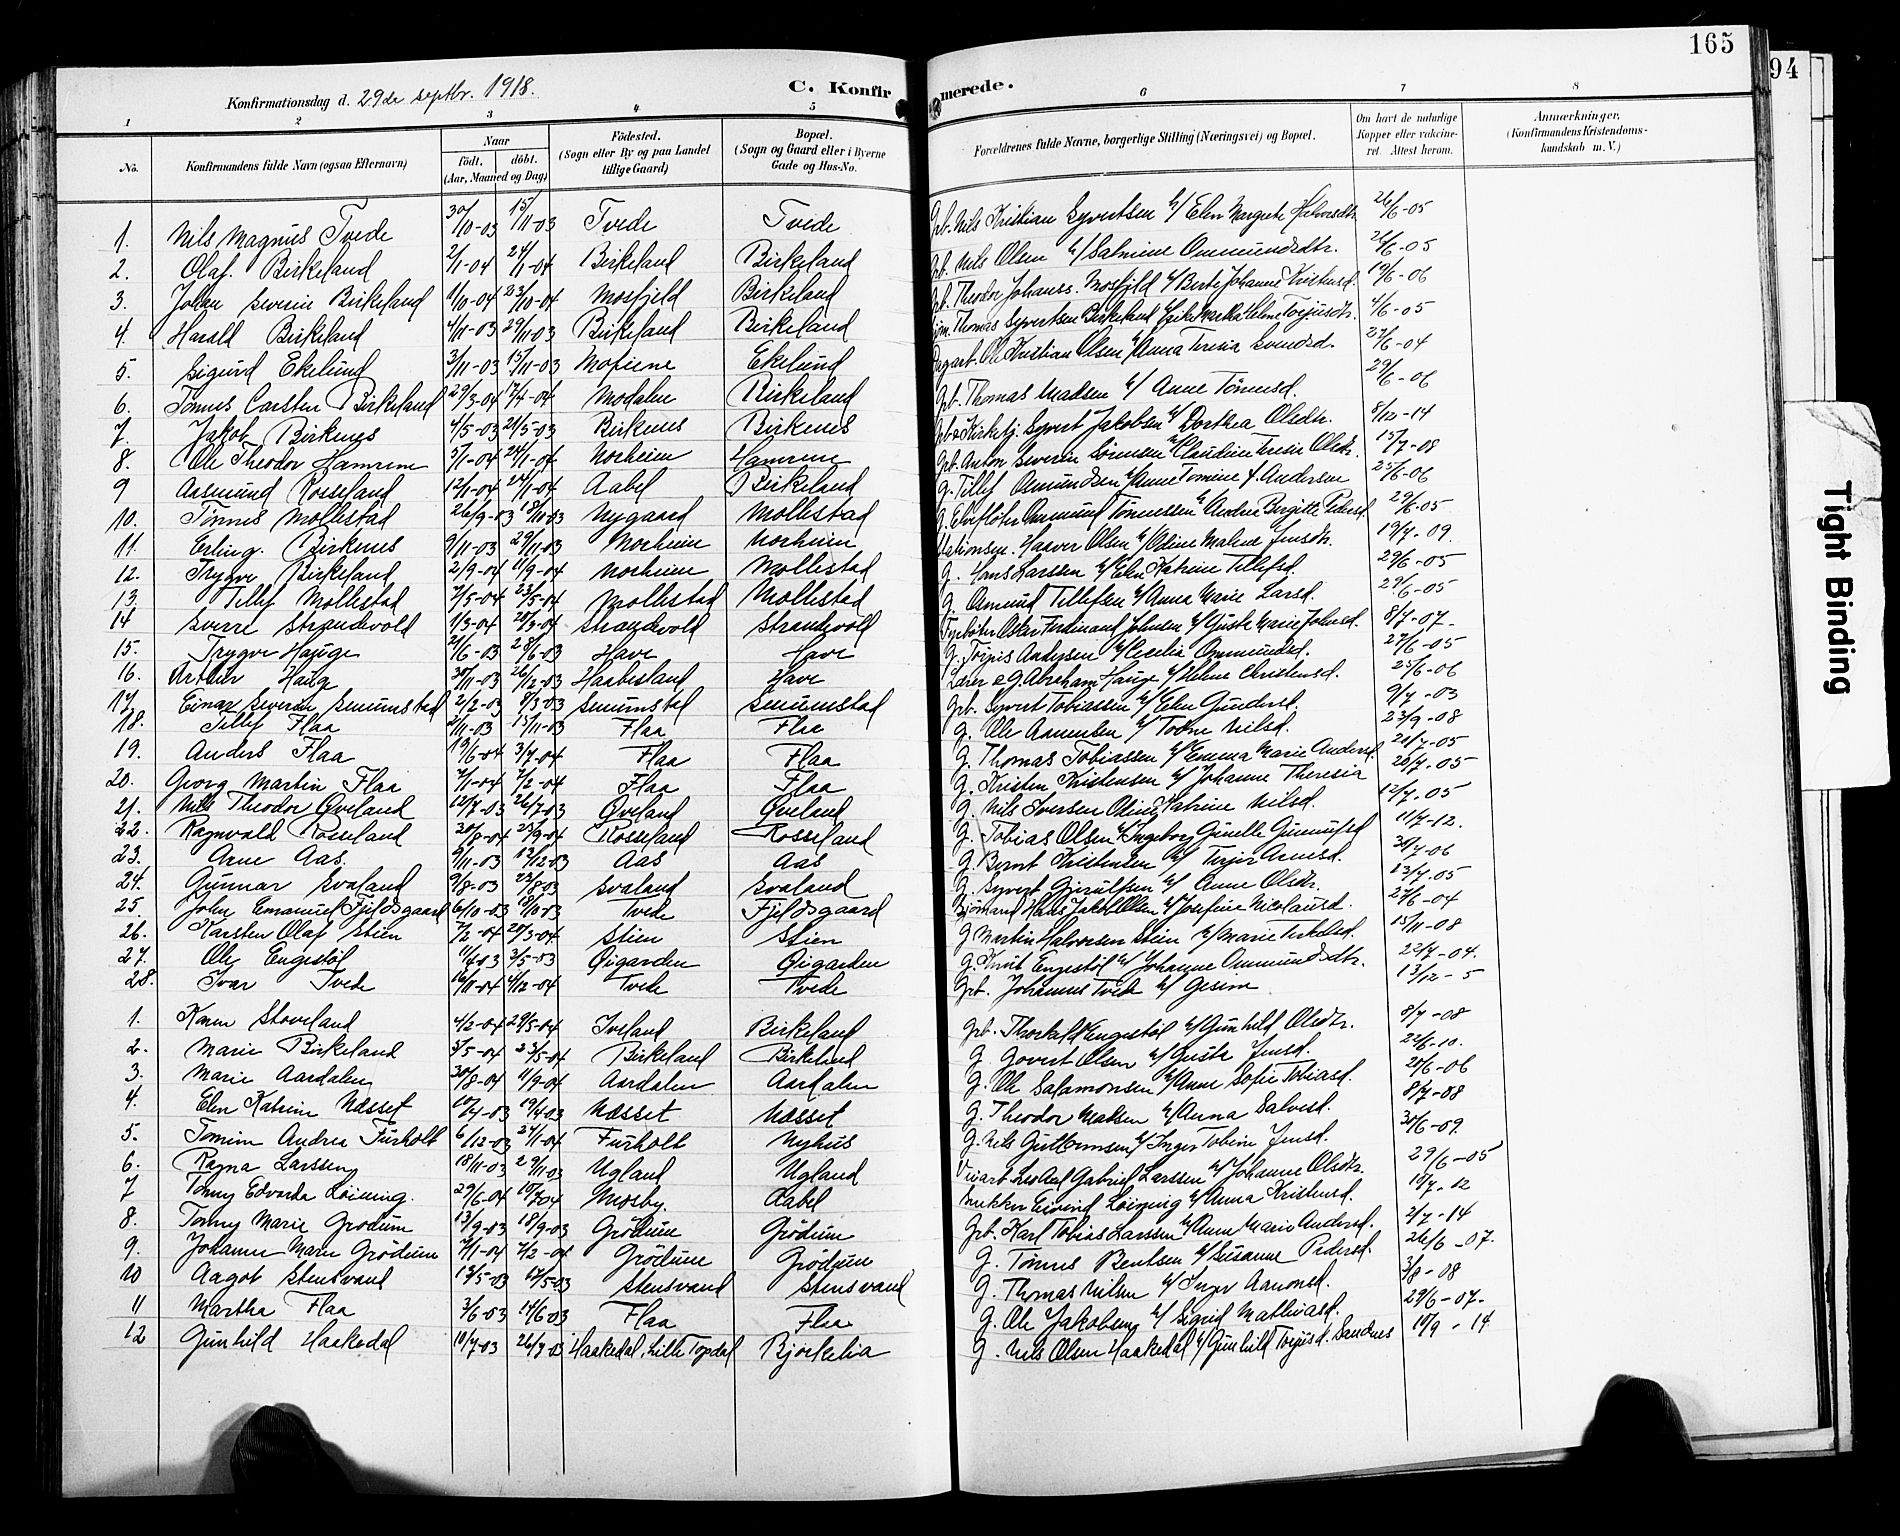 165
94
Konfirmationsdag d. 29de septbr. 1918.
C. Konfirmerede.
1 2 3 4 5 6 7 8
No.
Konfirmandens fulde Navn (ogsaa Efternavn)
Naar
født. døbt.
(Aar, Maaned og Dag)
Fødested.
(Sogn eller By og paa Landet
tillige Gaard)
Bopæl.
(Sogn og Gaard eller i Byerne
Gade og Hus-No.
Forældrenes fulde Navne, borgerlige Stilling (Næringsvei) og Bopæl.
Om havt de naturlige
Kopper eller vaksine-
ret. Attest herom.
Anmærkninger.
(Konfirmandens Kristendoms-
kundskab m. V.)
1. Nils Magnus Tvede 30/10-03 15/11-03 Tvede Tvede Grb. Nils Kristian Syvertsen & Elen Margrete Halvorsdtr. 26/6-05
2. Olaf Birkeland 2/1-04 24/1-04 Birkeland Birkeland Grb. Nils Olsen & Salmine Ommundsdtr. 26/6-05
3. Johan Severin Birkeland 1/10-04 23/10-04 Mosfjeld Birkeland Grb. Theodor Johanss. Mosfjeld & Berte Johanne Kristensd. 19/6-06
4. Harald Birkeland 4/11-03 29/11-03 Birkeland Birkeland Thomas Syvertsen Birkeland Helene Torjusdtr. 4/6-05
5. Sigurd Ekelund 3/11-03 15/11-03 Moseiene Ekelund Dagarb. Ole Kristian Olsen & Anna Teresia Svendsd. 27/6-04
6. Tønnes Carsten Birkeland 29/3-04 17/4-04 Modalen Birkeland Grb. Thomas Madsen & Anne Tønnesd. 29/6-06
7. Jakob Birkenes 4/5-03 21/5-03 Birkenes Birkenes Grb. & Kirketj. Syvert Jakobsen & Dorthea Olsdtr. 8/12-14
8. Ole Theodor Hamrene 5/1-04 24/1-04 Norheim Hamrene Grb. Anton Severin Sørensen & Claudine Teresie Olsdtr. 15/7-08
9 Aasmund Rosseland 12/1-04 24/1-04 Aabel Birkeland G. Tellef Osmundsen & Anne Tomine f. Andersen 25/6-06
10. Tønnes Mollestad 26/9-03 18/10-03 Nygaard Mollestad G. Elvefløter Ommund Tønnessen & Andrea Birgitte Pedersd. 29/6-05
11. Erling Birkenes 9/11-03 29/11-03 Norheim Norheim Stationsm. Haaver Olsen & Oline Malene Jensdtr. 19/7-09.
12. Trygve Birkeland 2/9-04 11/9-04 Norheim Mollestad G. Hans Larssen & Elen Katrine Tellefsd. 29/6-05
13. Tellef Mollestad 2/5-04 23/5-04 Mollestad Mollestad G. Osmund Tellefsen & Anna Marie Larsd. 29/6-05
14 Sverre Strandevold 1/3-04 20/3-04 Strandevold Strandevold Fyrbøter Oskar Ferdinand Johnsen & Marie Johnsd. 8/7-07-
15. Trygve Hauge 21/6-03 28/6-03 Have Have G. Torjus Andersen & Cecilia Ommundsd. 27/6-05
16. Arthur Haug 30/11-03 26/12-03 Haabesland Have Lærer & G. Abraham Hauge & Helene Christensd. 25/6-06
17. Einar Severin Senumstad 2/2-03 8/3-03 Senumstad Senumstad Grb. Syvert Tobiassen & Elen Gundersd. 9/7-03
18. Tellef Flaa 2/11-03 15/11-03 Flaa Flaa G. Ole Aanensen & Todne Nilsd. 23/9-08
19. Anders Flaa 19/6-04 3/7-04 Flaa Flaa G. Thomas Tobiassen & Emma Marie Andersd. 21/7-05
20. Georg Martin Flaa 7/1-04 7/2-04 Flaa Flaa G. Kristen Kristensen & Johanne Theresia 20/7-05
21. Nils Theodor Øveland 12/7-03 26/7-03 Øveland Øveland G. Nils Iversen Oline Katrine Nilsd. 12/7-05
22. Ragnvald Rosseland 20/8-04 25/9-04 Rosseland Rosseland G. Tobias Olsen & Ingeborg Gunelle Gunnufsd 11/7-12.
23. Arne Aas. 9/11-03 13/12-03 Aas Aas G. Bernt Kristensen & Terjer Arnesd. 30/7-06
24. Gunnar Svaland 9/8-03 23/8-03 Svaland Svaland G. Syvert Gjerulfsen & Anne Olsdtr. 13/7-05
25. John Emanuel Fjeldsgaard 6/10-03 18/10-03 Tvede Fjeldsgaard Sjømand Hans Jakob Olsen & Josefine Nicolausd. 27/6-04
26. Karsten Olaf Stien 7/2-04 27/3-04 Stien Stien G Martin Halvorsen Stien & Marie Terkelsd. 15/11-08
27. Ole Engestøl 11/4-03 3/5-03 Øigarden Øigarden G. Knut Engestøl & Johanne Ommundsdtr. 22/7-04.
28. Ivar Tvede 16/11-04 4/12-04 Tvede Tvede Grb. Johannes Tvede & Gesine 13/12-5
1. Karen Stoveland 4/2-04 29/5-04 Iveland Birkeland Grb. Thorkild Engestøl & Gunhild Olsdtr. 8/7-08
2. Marie Birkeland 3/5-04 23/5-04 Birkeland Birkeland G. Govert Olsen & Gusta Jensd. 22/6-10.
3. Marie Aardalen 30/8-04 11/9-04 Aardalen Aardalen G. Ole Salamonsen & Anne Sofie Tobiasd. 20/6-06
4. Elen Katrine Næsset 10/4-03 19/4-03 Næsset Næsset G. Theodor Madsen & Anna Salvesd. 8/7-08
5. Tomine Andrea Furholt 6/12-03 24/1-04 Furholt Nyhus G. Nils Guttormsen & Inger Tobine Jensd. 30/6-09.
6. Ragna Larssen 18/11-03 29/11-03 Ugland Ugland Gabriel Larssen & Johanne Olsdtr. 29/6-05
7 Tonny Edvarda Løining. 29/6-04 10/7-04 Mosby. Aabel Snekker Eivind Løining & Anna Kristensd. 10/7-12
8. Tonny Marie Grødum 13/9-03 18/9-03 Grødum Grødum Grb. Karl Tobias Larssen & Anne Marie Andersd. 2/7-14
9. Johanne Marie Grødum 7/1-04 7/2-04 Grødum Grødum G. Tønnes Bentsen & Susanne Pedersd. 26/6-07.
10 Aagot Stensvand 13/5-03 17/5-03 Stensvand Stensvand G. Thomas Nilsen & Inger Aanonsd. 3/8-08
11 Martha Flaa 3/6-03 14/6-03 Flaa Flaa G. Ole Jakobsen & Sigrid Mathiasd. 29/6-07-
12 Gunhild Haakedal 10/7-03 26/7-03 Haakedal, Lille Topdal Bjorkelia G. Nils Olsen Haakedal & Gunhild Torjusd. Sandnes 10/9-14
Tight Binding